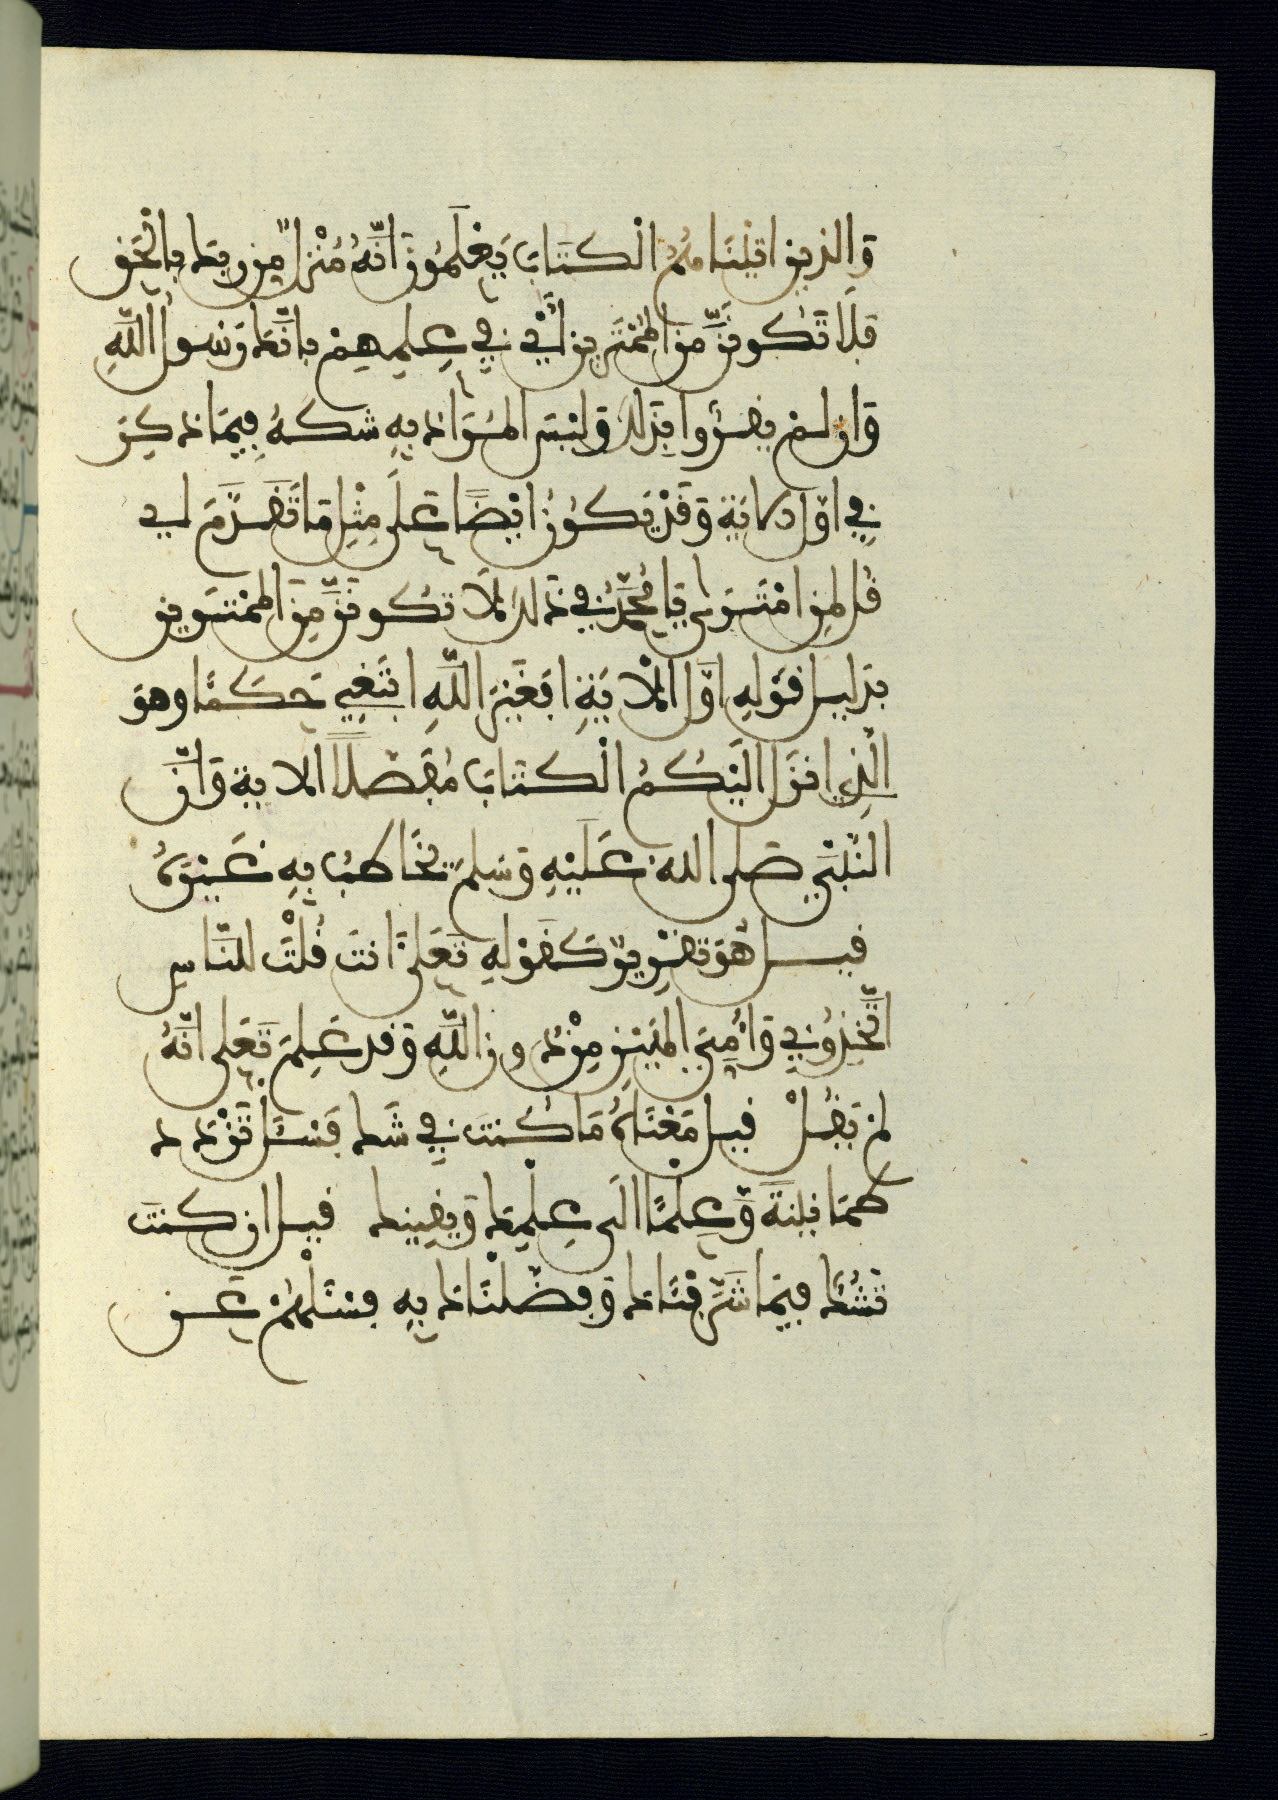 وَالذين اتينَاهُمُ الْكتَابَ يَعْلَمُونَ اَنَّهُ مُنْزلٌ مِن ربك بالْحَقِ
فَلَا تَكونَنَّ مِنَ الْمُمْتَرِين اَيْ فِي عِلمِهِمْ بانَّكَ رَسول اللَّهِ
وَان لمْ يقرُّوا بِذَلك وَليْسَ المُرَاد بِهِ شكهُ فِيمَا ذكِرَ
فِي اوَّل الاية وَقَدْ يَكُونُ ايْضًا عَلَى مِثْلِ مَا تَقَدَّمَ اي
قُل لِمَنِ امْتَرَى يَا مُحَمَّدُ فِي ذَلكَ لَا تكُونَنَّ مِنَ الْممْترين
بدَليل قَوْلِهِ اَوَّل الْايَةِ افَغَيْرَ اللَّهِ ابْتَغِي حَكَمًا وهوَ
الَّذِي انزَلَ الَيْكُمُ الْكتَابَ مُفَصَّلًا الاية وَانَّ
النَّبيَّ صَلى الله عَلَيْهِ وَسَلم يُخَاطبُ بِهِ غَيْرَهُ
قيل هُوَ تَقْرِيرٌ كَقَوْلِهِ تَعَلَى ءَانتَ قُلْتَ للنَّاسِ
اتَّخِذُونِي وَاُمِّيَ الَهَيْنِ مِنْ دُونِ اللَّهِ وَقد عَلِمَ تَعَلى انَّهُ
لمْ يَقُلْ قيل مَعْنَاهُ مَا كُنتَ فِي شَك فَسْئَلْ تَزْدَد
طمَانينةً وَّعِلْمًا الَى عِلْمِكَ وَيَقِينِك قيل ان كنتَ
تَشُكُّ فيمَا شَرَّفْنَاكَ وَفضَّلْنَاكَ بِهِ فسْئَلْهُمْ عَن